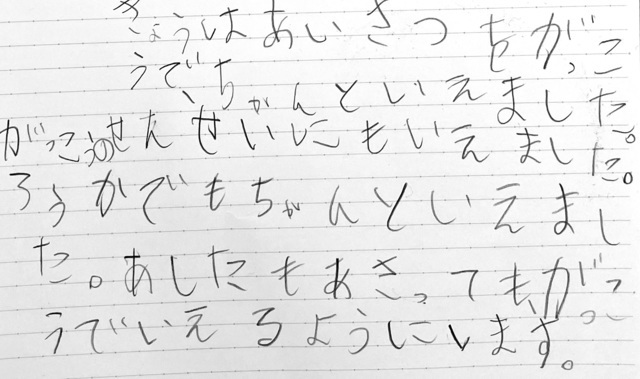 きょうはあいさつをがっこ
うで、ちゃんといえました。
がっこうのせんせいにもいえました。
ろうかでもちゃんといえまし
た。あしたもあさっても、がっこ
うでいえるようにします。